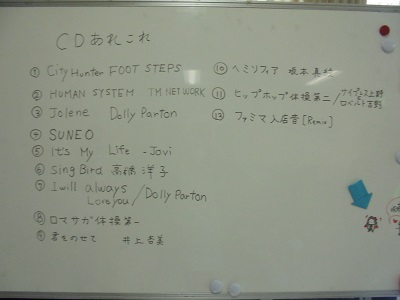 CDあれこれ
① City Hunter FOOT STEPS
② HUMAN SYSTEM TM NETWORK
③ Jolene Dolly Parton
④ SUNEO
⑤ It's My Life - Jovi
⑥ Sing Bird 高橋洋子
⑦ I will always
Love you / Dolly Parton
⑧ ロマサガ体操第一
⑨ 君をのせて 井上杏美
⑩ ヘミソフィア 坂本真綾
⑪ ヒップホップ体操第二 / サイプレス上野
ロベルト吉野
⑫ ファミマ入店音 [Remix]